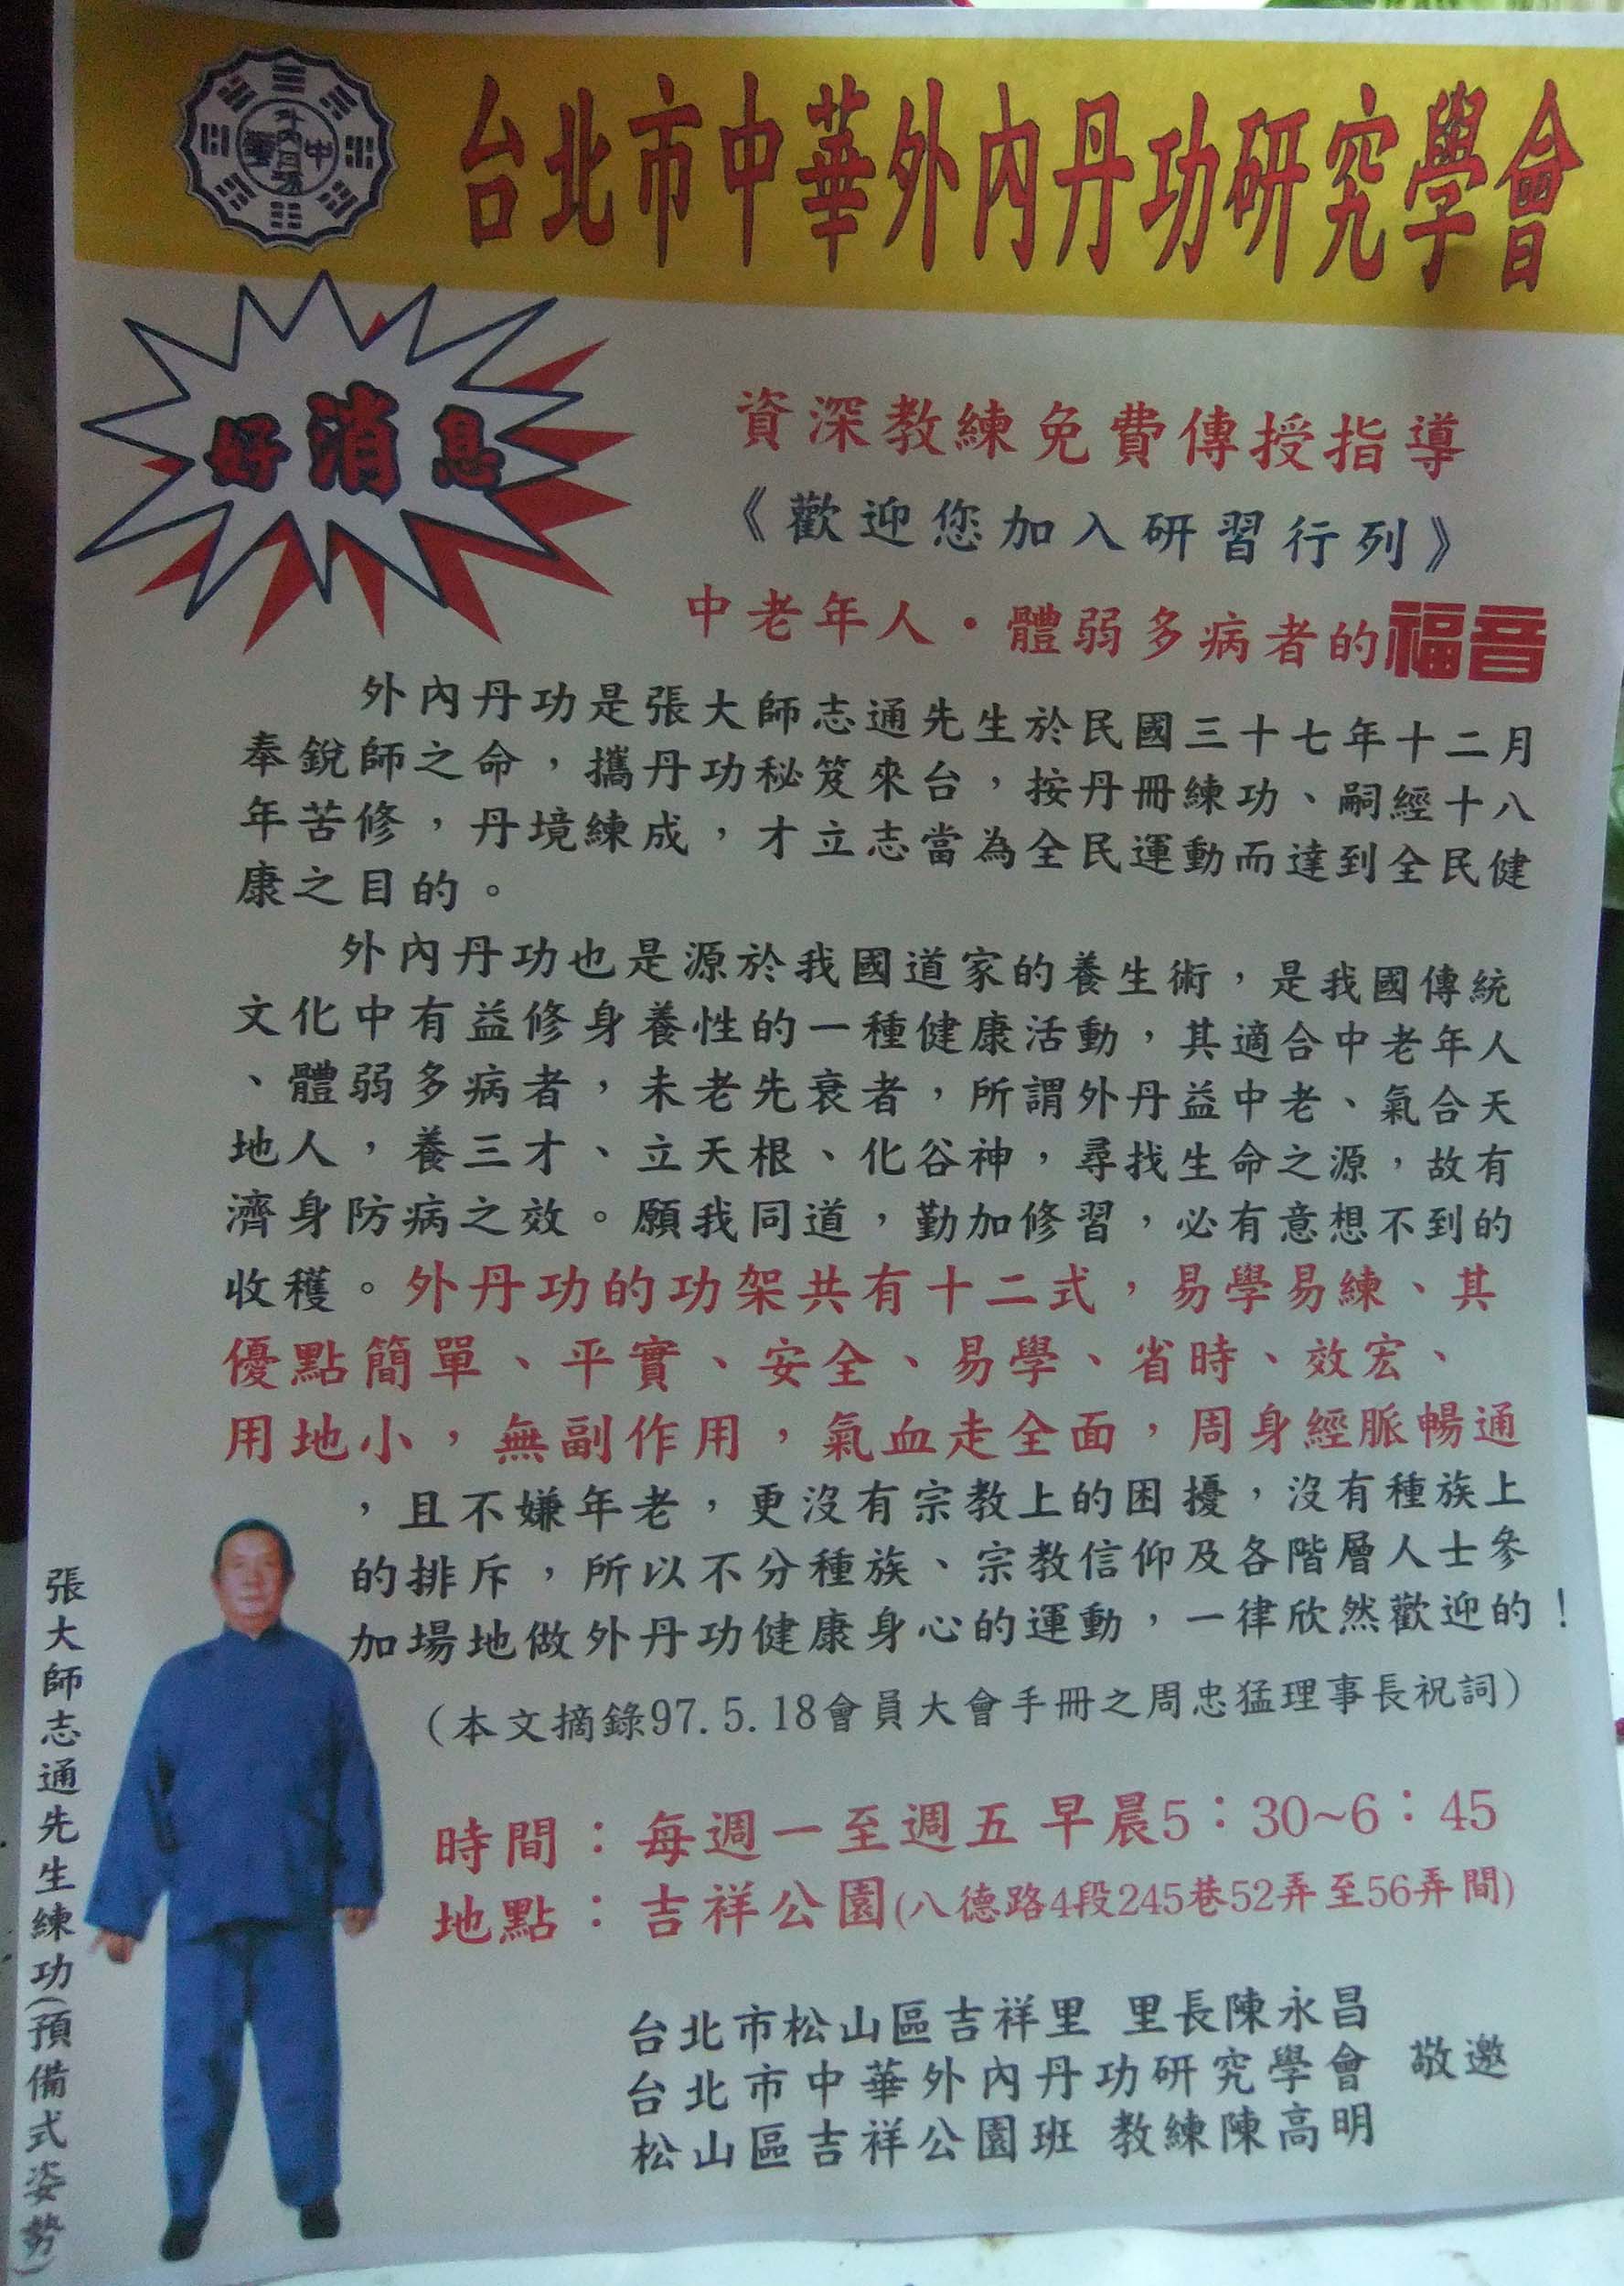 台北市中華外內丹功研究學會
好消息
資深教練免費傳授指導
《歡迎您加入研習行列》
中老年人・體弱多病者的福音
外內丹功是張大師志通先生於民國三十七年十二月
奉銳師之命，攜丹功秘笈來台，按丹冊練功、嗣經十八
年苦修，丹境練成，才立志當為全民運動而達到全民健
康之目的。
外內丹功也是源於我國道家的養生術，是我國傳統
文化中有益修身養性的一種健康活動，其適合中老年人
、體弱多病者，未老先衰者，所謂外丹益中老、氣合天
地人，養三才、立天根、化谷神，尋找生命之源，故有
濟身防病之效。願我同道，勤加修習，必有意想不到的
收穫。外丹功的功架共有十二式，易學易練、其
優點簡單、平實、安全、易學、省時、效宏、
用地小，無副作用，氣血走全面，周身經脈暢通
，且不嫌年老，更沒有宗教上的困擾，沒有種族上
的排斥，所以不分種族、宗教信仰及各階層人士參
加場地做外丹功健康身心的運動，一律欣然歡迎的！
（本文摘錄97.5.18會員大會手冊之周忠猛理事長祝詞）
時間：每週一至週五 早晨5：30~6：45
地點：吉祥公園(八德路4段245巷52弄至56弄間)
台北市松山區吉祥里 里長陳永昌
台北市中華外內丹功研究學會 敬邀
松山區吉祥公園班 教練陳高明
張大師志通先生練功(預備式姿勢)